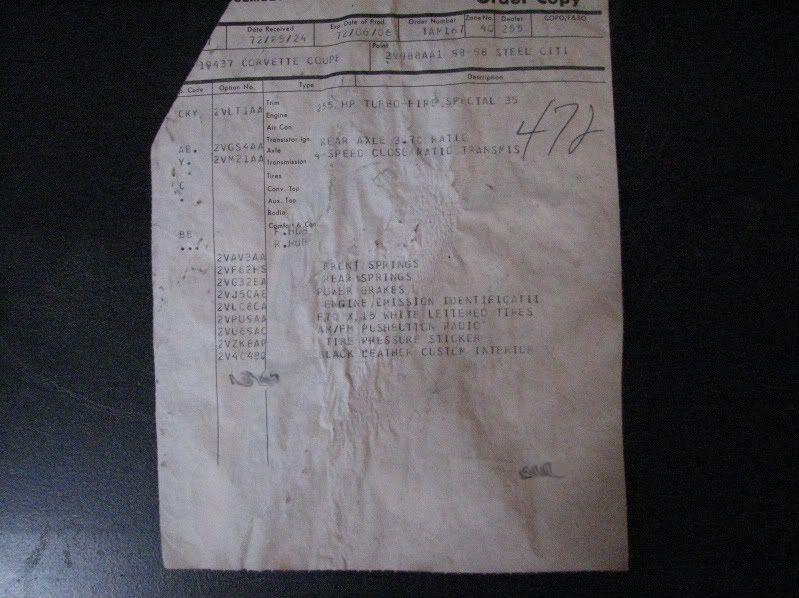 Order Copy
Date Received Exp Date of Prod. Order Number Zone No. Dealer COPO, F&SO
72/05/24 72/06/06 1AM167 40 255
Point
19437 CORVETTE COUPE 98-98 STEEL CITI
Code Option No. Type Description
Trim
CKY, 2VLT1AA 255 HP TURBO-FIRE SPECIAL 35
Engine
Air Con.
Transistor Ign.
AB. 2VGS4AA Axle REAR AXLE 3.70 RATIO
Y. 2VM21AA Transmission 4-SPEED CLOSE RATIO TRANSMIS
472
Tires
C Conv. Top
Aux. Top
Radio
Comfort & Con.
BE F.HUB
R.HUB
2VAV3AA
2VF62HS FRONT SPRINGS
2VG32EA REAR SPRINGS
2VJ5CAE POWER BRAKES
2VLC8CA ENGINE EMISSION IDENTIFICATII
2VPU9AA F70 X 15 WHITE LETTERED TIRES
2VU69AC AM/FM PUSHBUTTON RADIO
2VZK8AP TIRE PRESSURE STICKER
2V4C48D BLACK LEATHER CUSTOM INTERIOR